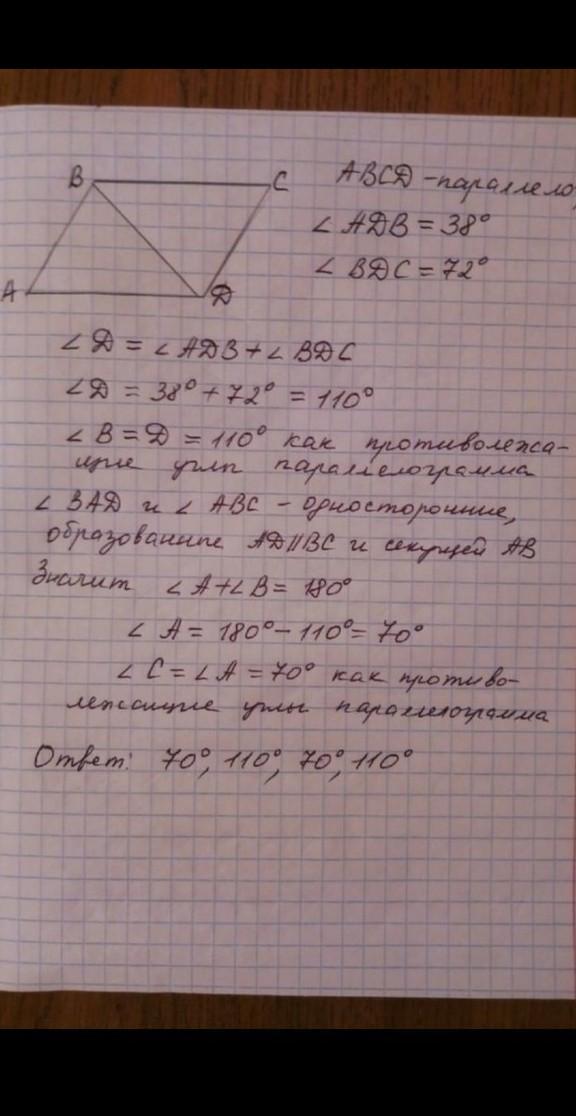 B
C
A
D
ABCD - параллело
∠ ADB = 38°
∠ BDC = 72°
∠ D = ∠ ADB + ∠ BDC
∠ D = 38° + 72° = 110°
∠ B = D = 110° как противолежа-
щие углы параллелограмма
∠ BAD и ∠ ABC - односторонние,
образованные AD || BC и секущей AB
Значит ∠ A + ∠ B = 180°
∠ A = 180° - 110° = 70°
∠ C = ∠ A = 70° как противо-
лежащие углы параллелограмма
Ответ: 70°, 110°, 70°, 110°